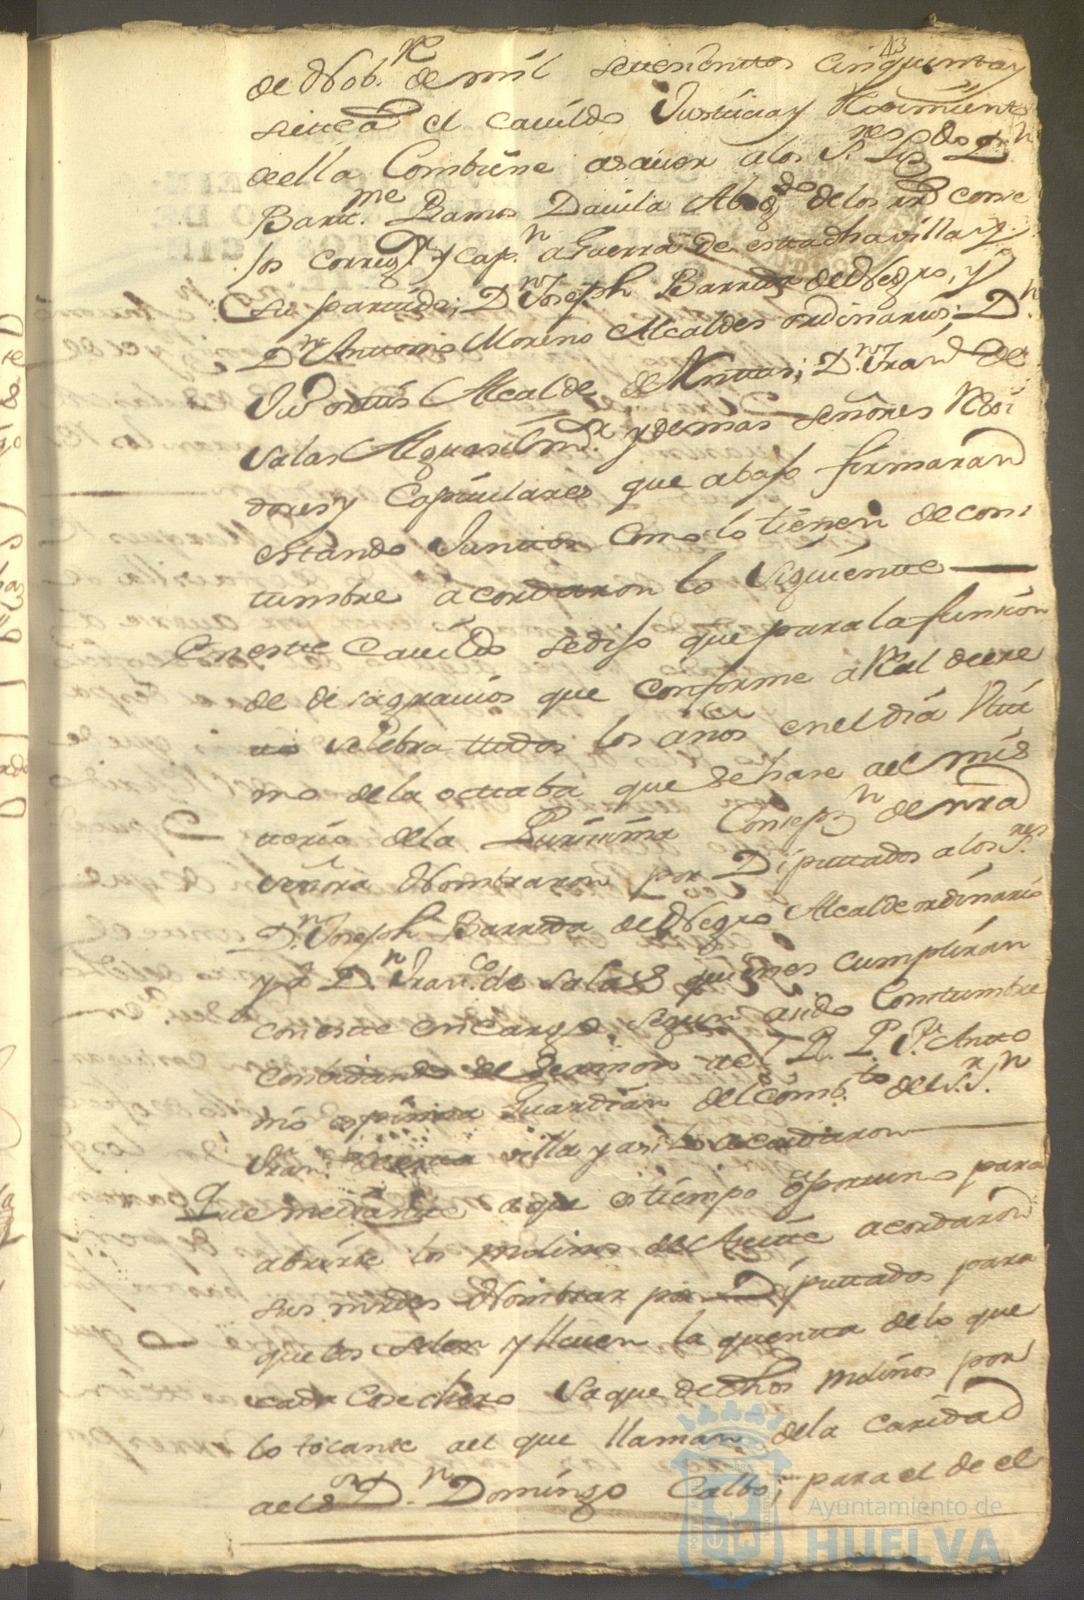 43
de Nob.re de mil setesientos cinquenta y
siette a el Cauildo Justicia y Reximiento
de ella Combiene asauer a los S.res Liz.do D.n
Bart.me Ramos Dauila Abog.do de los rr.s conse
jos correg.r y cap.n a Guerra de esta dha villa y
su partido; D.n Joseph Barreda de Negro, y
D.n Antonio Moreno Alcaldes ordinarios; D.n
Alcalde de D.n Fran.co de
Salas Alguasil m.r y demas señores Rexi
dores y Capitulares que abajo firmaran
estando Juntos Como lo tienen de cos
tumbre acordaron lo siguiente
En este Cauildo se dijo que para la funsion
de desagrauios que conforme a Real decre
to se selebra ttodos los años en el dia Ulti
mo de la octtaba que se hase a el mis
terio de la Purisima Consep.n de nra
señora Nombraron por Diputtados a los S.res
D.n Joseph Barreda de Negro Alcalde ordinario
y a D.n Fran.co de Salas quienes cumpliran
con este encargo segun a sido Costumbre
Conbidando el Sermon a el R. P. F.r Anto
nio Guardian del Comb.to del S.r S.n
Fran.co de esta villa y asi lo acordaron
Que mediante a que es tiempo oportuno para
abrirse los molinos de Aseite acordaron
sus mrdes Nombrar por Diputtados para
que los selen y lleuen la quenta de lo que
cada Cosechero saque de dhos molinos por
lo tocante a el que llaman de la Caridad
a el S.or D.n Domingo Calbo; para el de el
Ayuntamiento de
HUELVA